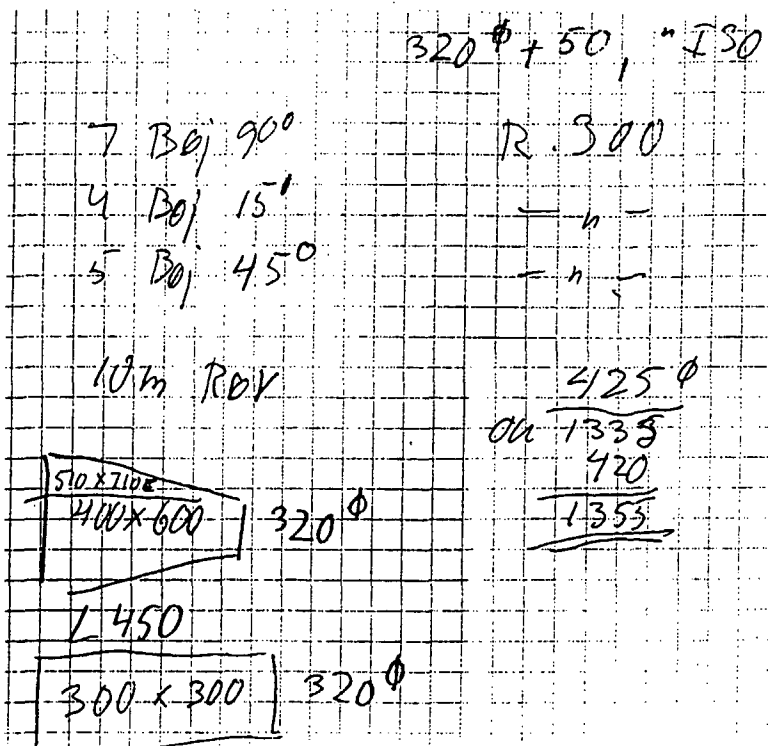 320⌀ + 50, " ISO
7 Böj 90° R. 300
4 Böj 15° — " —
5 Böj 45° — " —
10m Rör
425⌀
1335
420
1355
510 x 710
400 x 600 320⌀
L 450
300 x 300 320⌀